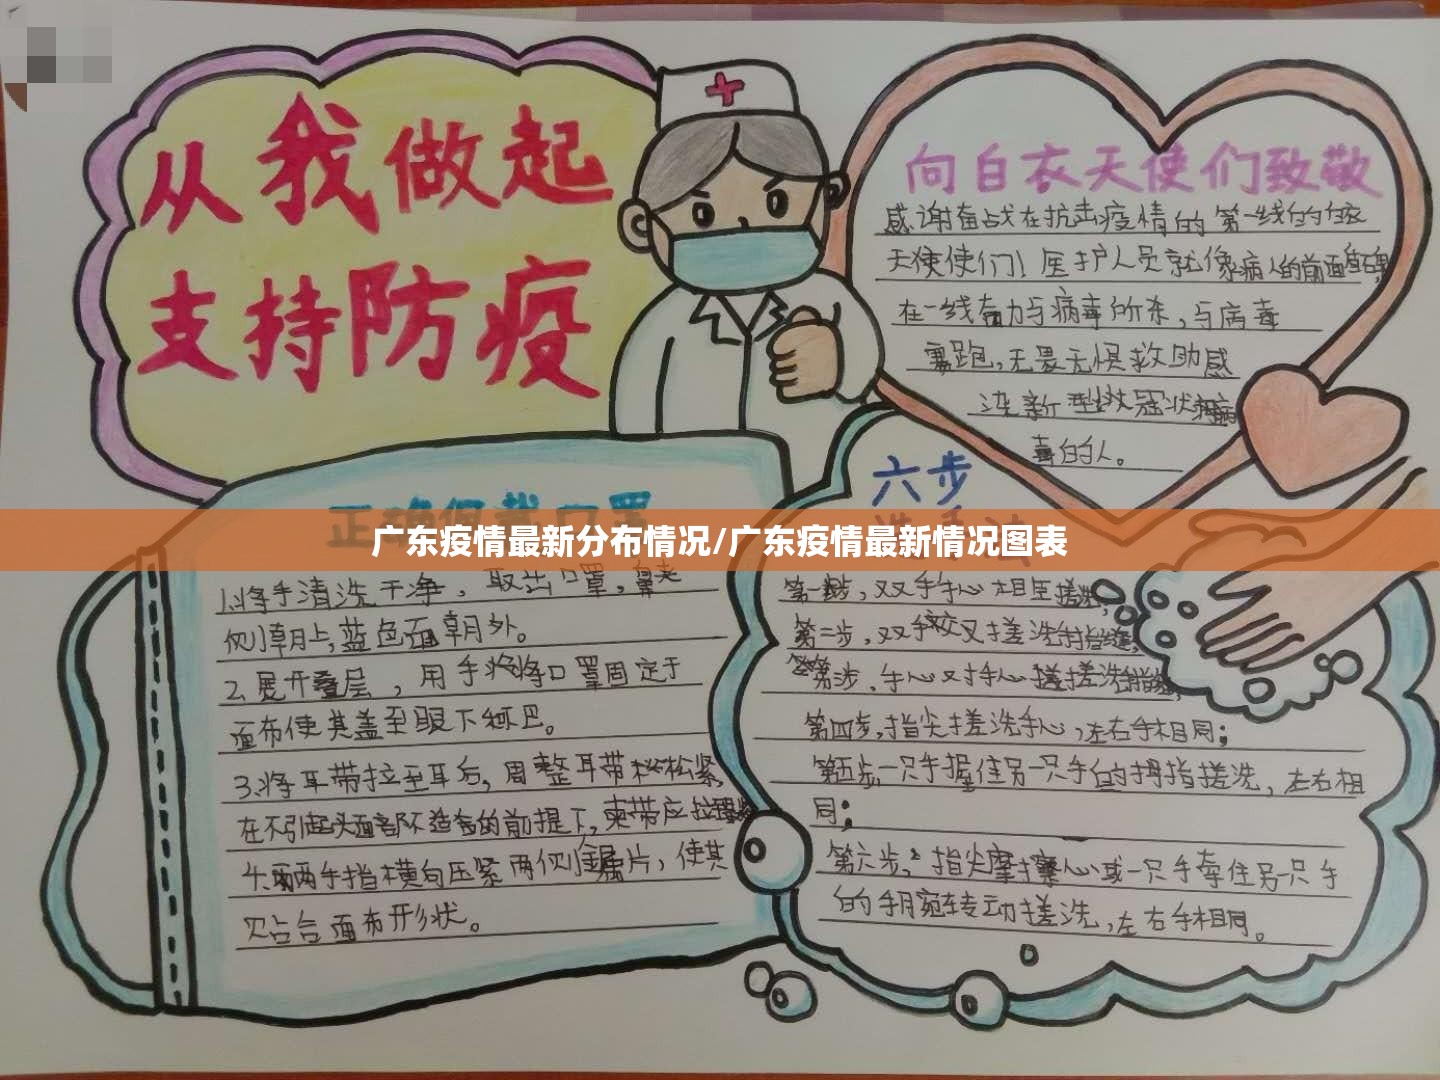 从我做起
支持防疫
向白衣天使们致敬
感谢奋战在抗击疫情的第一线的白衣
天使使们！医护人员就像病人的前面
在一线奋力与病毒所杀，与病毒
赛跑，无畏无惧救助感
染新型冠状病
毒的人。
正确佩戴口罩
广东疫情最新分布情况/广东疫情最新情况图表
1.将手清洗干净，取出口罩，鼻夹
侧朝上，蓝色面朝外。
2.展开叠层，用手将口罩固定于
面布使其盖至眼下
3.将耳带拉至耳后，调整耳带松紧
在不引起头面部不适的前提下，束带应拉
4.两手指横向压紧两侧片，使其
贴合面布形状。
六步
第一步，双手手心相互搓洗
第二步，双手交叉搓洗手指
第三步，手心对手心搓搓洗
第四步，指尖搓洗手心，左右手相同；
第五步一只手握住另一只手的拇指搓洗，左右相
同；
第六步，指尖摩擦心或一只手牵住另一只手
的手腕转动搓洗，左右手相同。